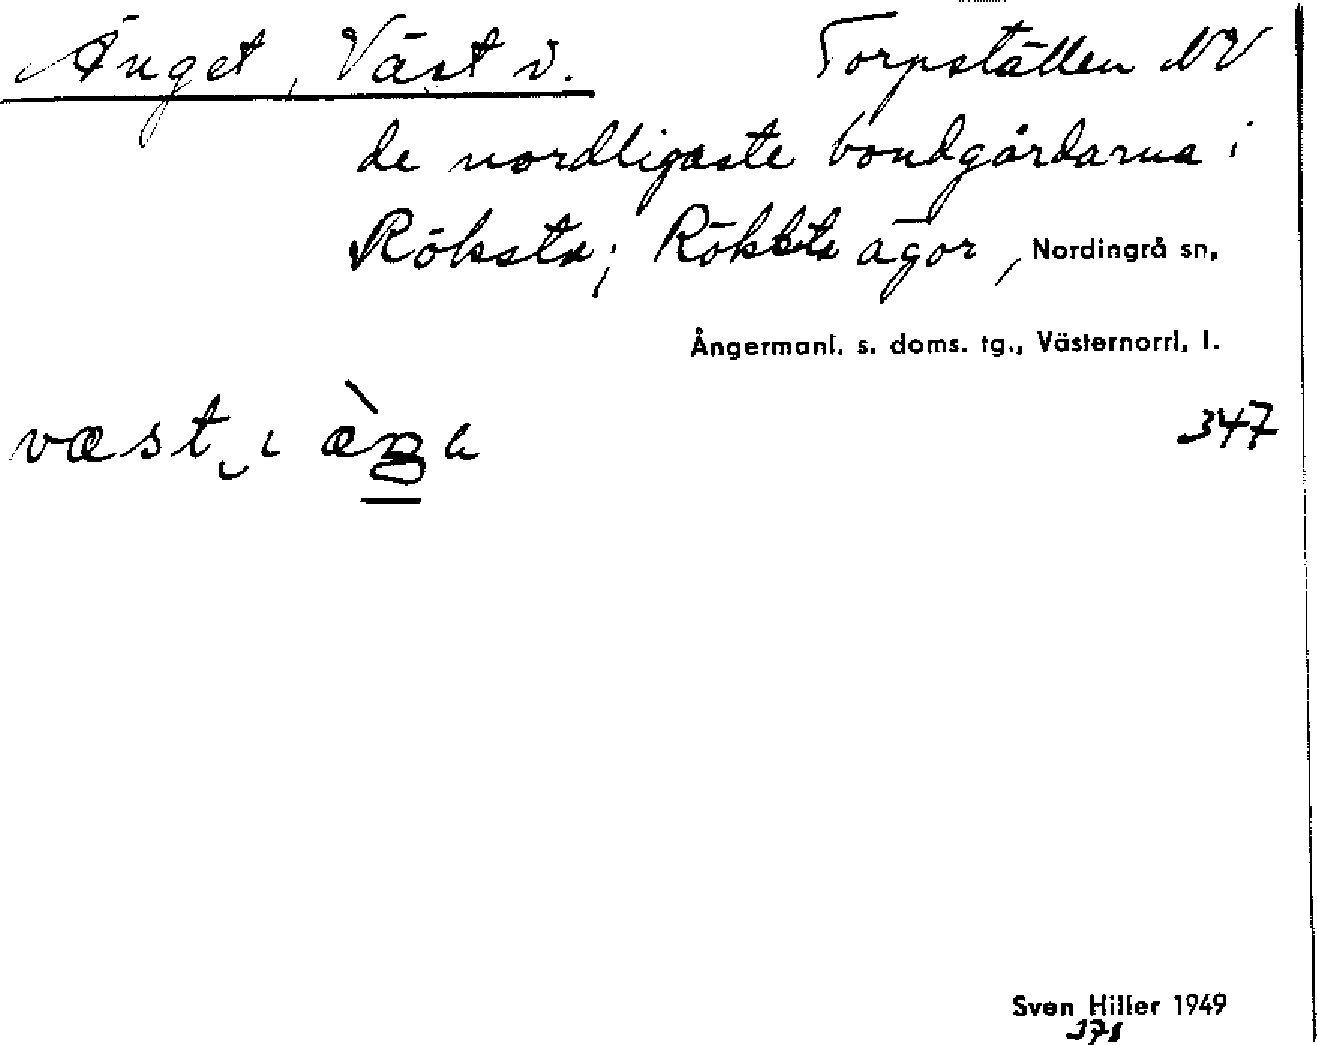 Änget, Väst i. Torpställen NV
de nordligaste bondgårdarna i
Röksta; Röksta ägor, Nordingrå sn,
Ångermanl. s. doms. tg., Västernorrl. l.
väst i 347
Sven Hiller 1949